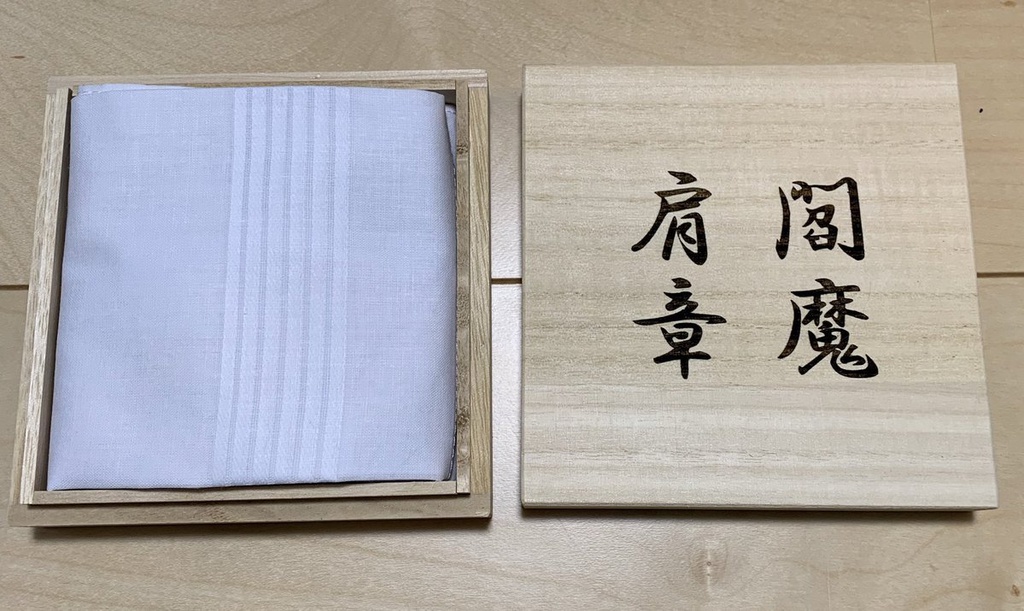 閻魔
肩章